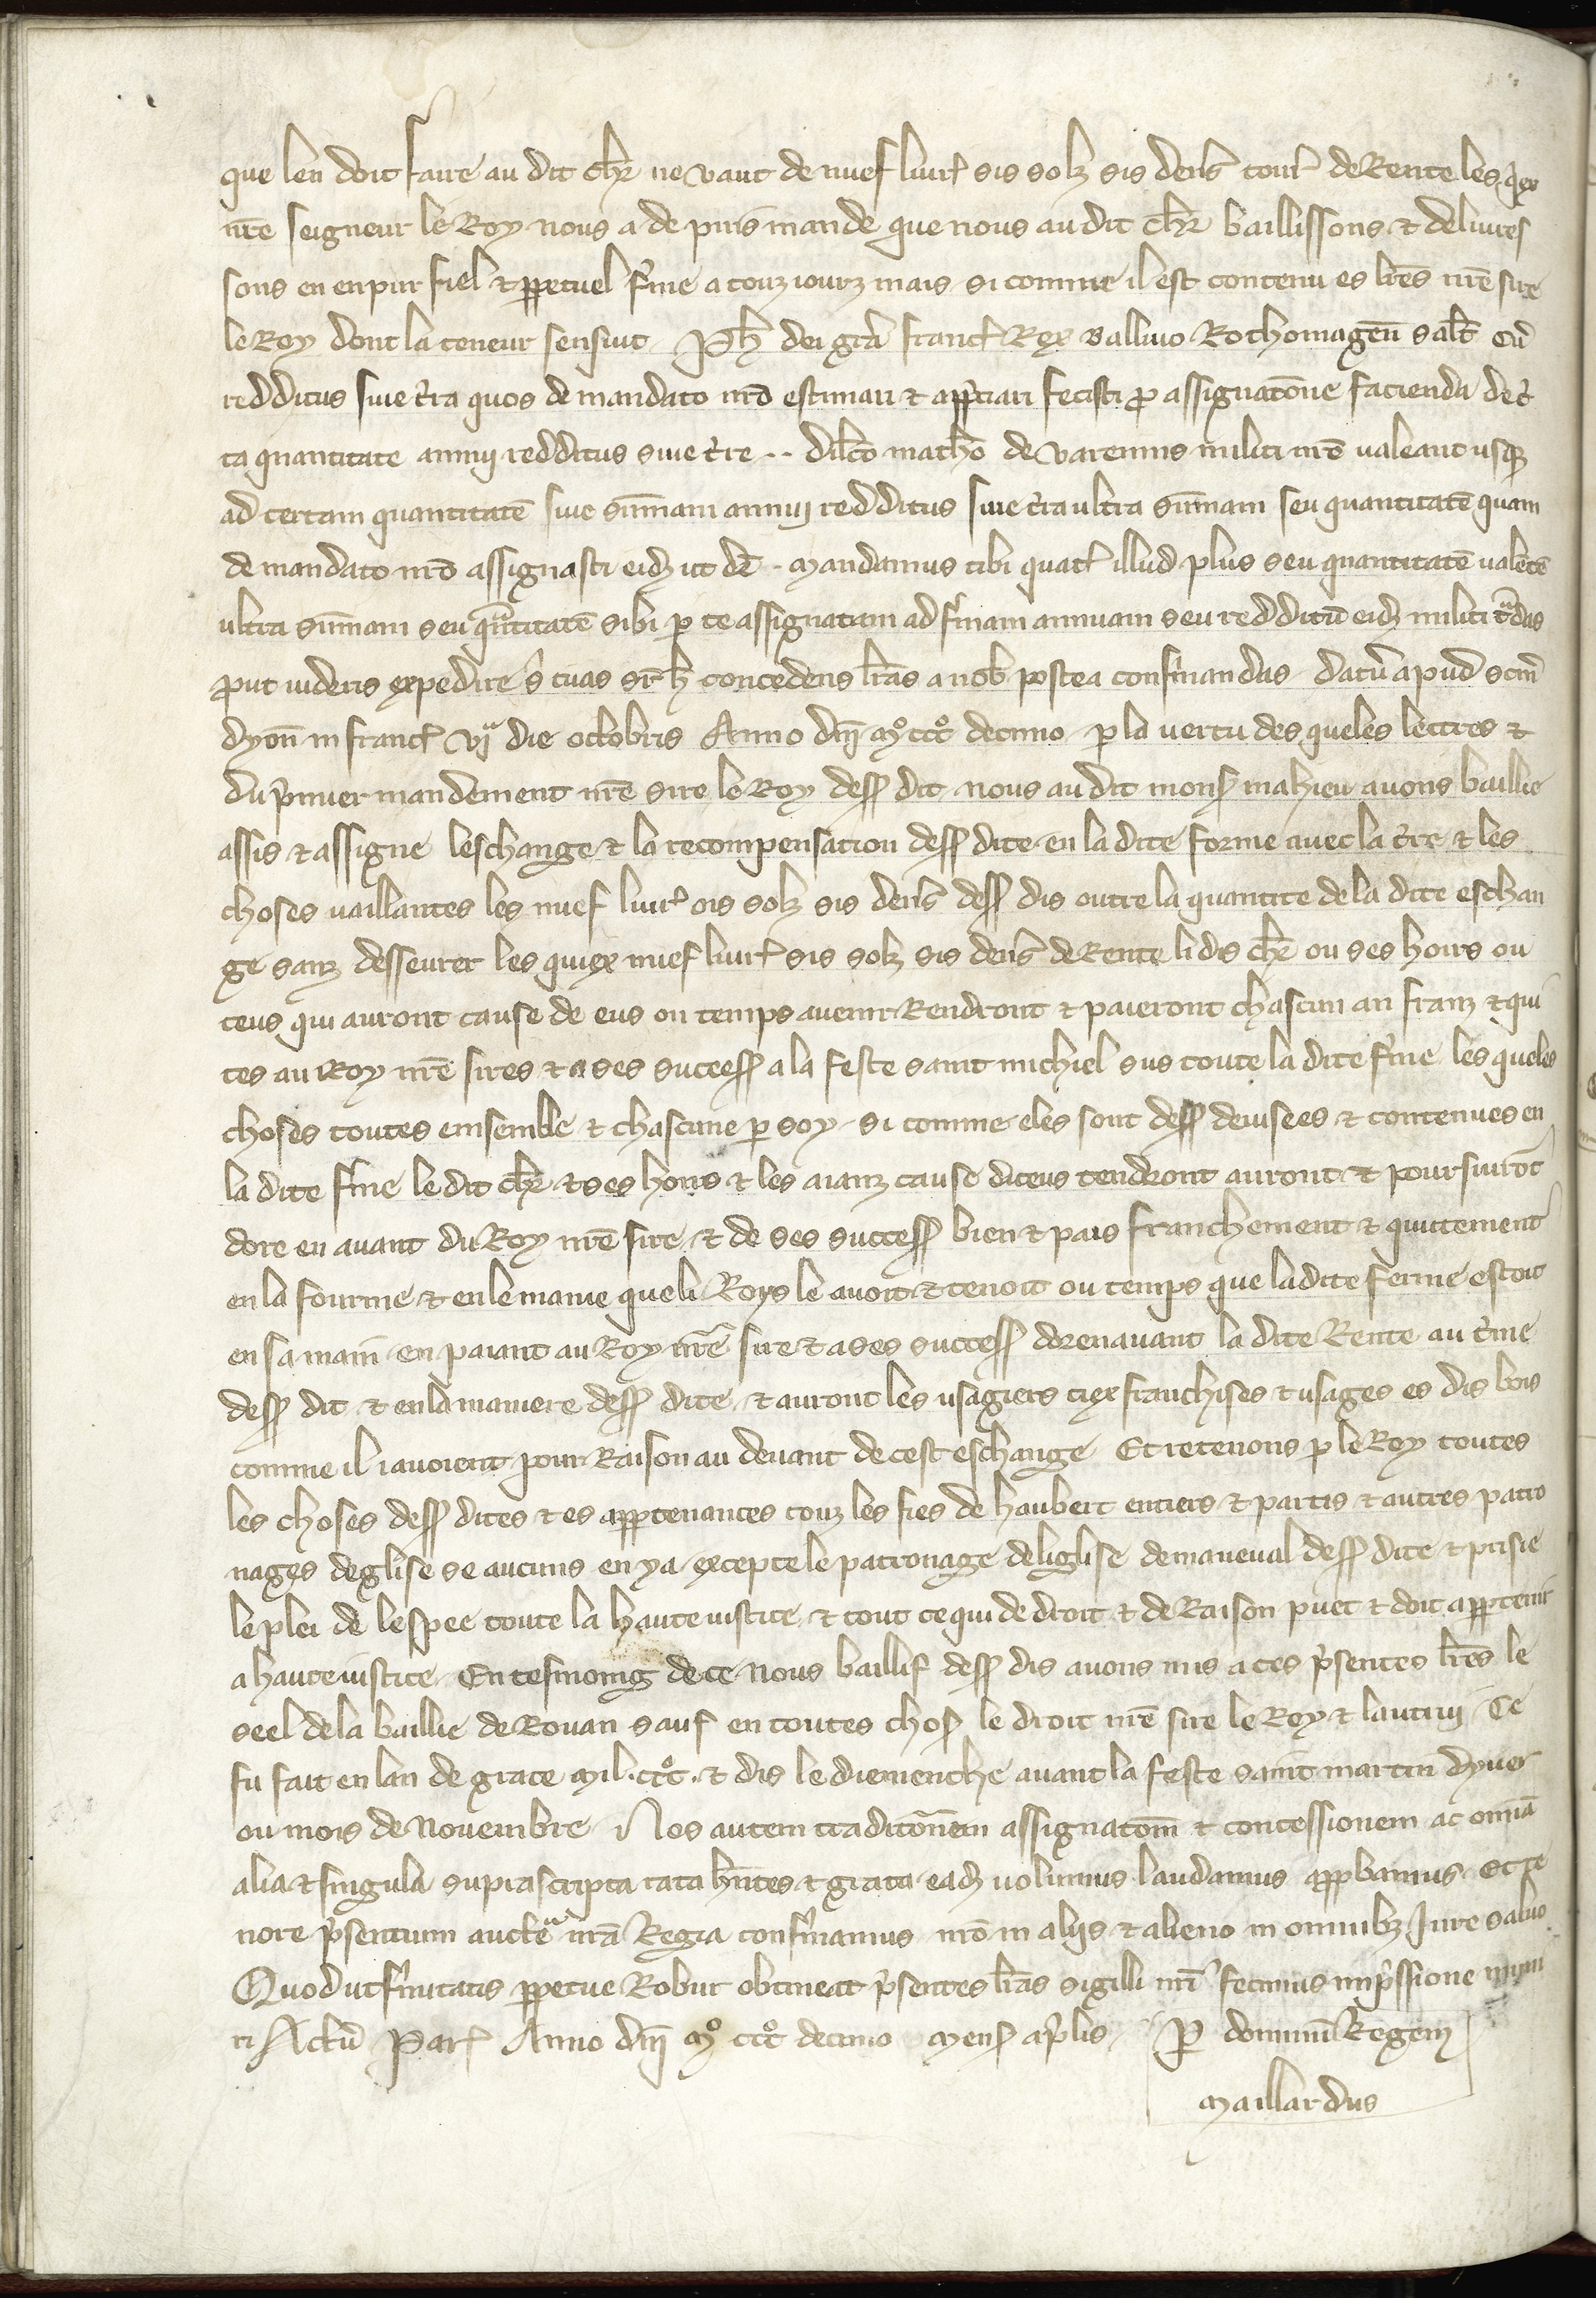 que len doit faire au dit chr̄ ne vaut de nuef liur̄ sis solz sis den̄s tour̄ de Rente les qex
nr̄e seigneur le Roy nous a de puis mande que nous au dit chr̄ baillissons ⁊ deliures
sons en enpur fiel ⁊ ꝑpetuel fr̄me a touz iourz mais si comme il est contenu es lr̄es nr̄e sire
le Roy dont la teneur sensiut Ph̄ dei gr̄a franc̄ Rex Balliuo Rothomagen̄ salt̄ Cū
redditus siue t̄ra quos de mandato nr̄o estimari ⁊ app̄ciari fecisti ꝓ assignatōne facienda de c̄
ta quantitate annui redditus siue t̄re .. dil̄co math̄o de varennis militi nr̄o ualeant usqꝫ
ad certam quantitatē siue sum̄am annui redditus siue t̄ra ultra sum̄am seu quantitatē quam
de mandato nr̄o assignasti eidꝫ ut dr̄ . mandamus tibi quat̄ illud plus seu quantitatē ualētē
ultra sum̄am seu qͣntitatē sibi ꝑ te assignatam ad fr̄mam annuam seu redditū eidꝫ militi tͣdas
ꝓut uideris expedire s̄ tuas sr̄ h̄ concedens lr̄as a nob̄ postea confirmandas . datū apud scm̄
dyon̄ in franc̄ vjͣ die octobris Anno dn̄i mᵒ cccᵒ decimo . ꝑ la uertu des queles lettres ⁊
du p̄mier mandement nr̄e sire le Roy dess̄ dit nous au dit mons̄ mahieu auons baillie
assis ⁊ assigne leschange ⁊ la recompensation dess̄ dite en la dite forme auec la t̄re ⁊ les
choses uaillantes les nuef liur̄ sis solz sis den̄s dess̄ dis outre la quantite de la dite eschan
ge sanz desseurer les quiex nuef liur̄ sis solz sis den̄s de Rente li dis chr̄ ou ses hoirs ou
ceus qui auront cause de eus ou temps auenir Rendront ⁊ paieront chascun an franz ⁊ qui
tes au Roy nr̄e sires ⁊ a ses success̄ a la feste saint michiel sus toute la dite fr̄me les queles
choses toutes ensemble ⁊ chascune ꝑ soy . si comme eles sont dess̄ deuisees ⁊ contenues en
la dite fr̄me le dit chr̄ ⁊ ses hoirs ⁊ les aianz cause diceus tendront auront ⁊ poursiurōt
dore en auant du Roy nr̄e sire ⁊ de ses success̄ bien ⁊ pais franchement ⁊ quitement
en la fourme ⁊ en le manie que li Roys le auoit ⁊ tenoit ou temps que la dite ferme estoit
en sa main en paiant au Roy nr̄e sire ⁊ a ses success̄ dorenauant la dite Rente au t̄me
dess̄ dit ⁊ en la maniere dess̄ dite ⁊ auront les usagiers tiex franchises ⁊ usages es dis bois
comme il i auoient pour Raison au deuant de cest eschange Et retenons ꝑ le Roy toutes
les choses dess̄ dites ⁊ es appꝑtenances touz les fies de haubert entiers ⁊ partis ⁊ autres patro
nages deglise se aucuns en y a excepte le patronage de liglise de maneual dess̄ dite ⁊ prisie
le plei de lespee toute la haute iustice ⁊ tout ce qui de droit ⁊ de Raison puet ⁊ doit appꝑtenir
a haute iustice En tesmoing de ce nous baillif dess̄ dis auons mis a ces p̄sentes lr̄es le
seel de la baillie de Rouan sauf en toutes chos̄ le droit nr̄e sire le Roy ⁊ lautrui Ce
fu fait en lan de grace mil . cccᵒ . ⁊ dis le diemenche auant la feste saint martin dyuer
ou mois de Nouembre Nos autem traditōnem assignatōm̄ ⁊ concessionem ac omīa
alia ⁊ singula suprascripta rata hn̄tes ⁊ grata eadꝫ uolumus laudamus appꝓbamus . et te
nore p̄sentium aucteͣ nr̄a Regia confirmamus nr̄o in aliis ⁊ alieno in omnibꝫ Iure saluo
Quod ut firmitatis ꝑpetue Robur obtineat p̄sentes lr̄as sigilli nr̄i fecimus imp̄ssione muni
ri Actū Par̄ Anno dn̄i mᵒ cccᵒ decimo mens̄ ap̄lis Ꝑ dominū Regem
Maillardus